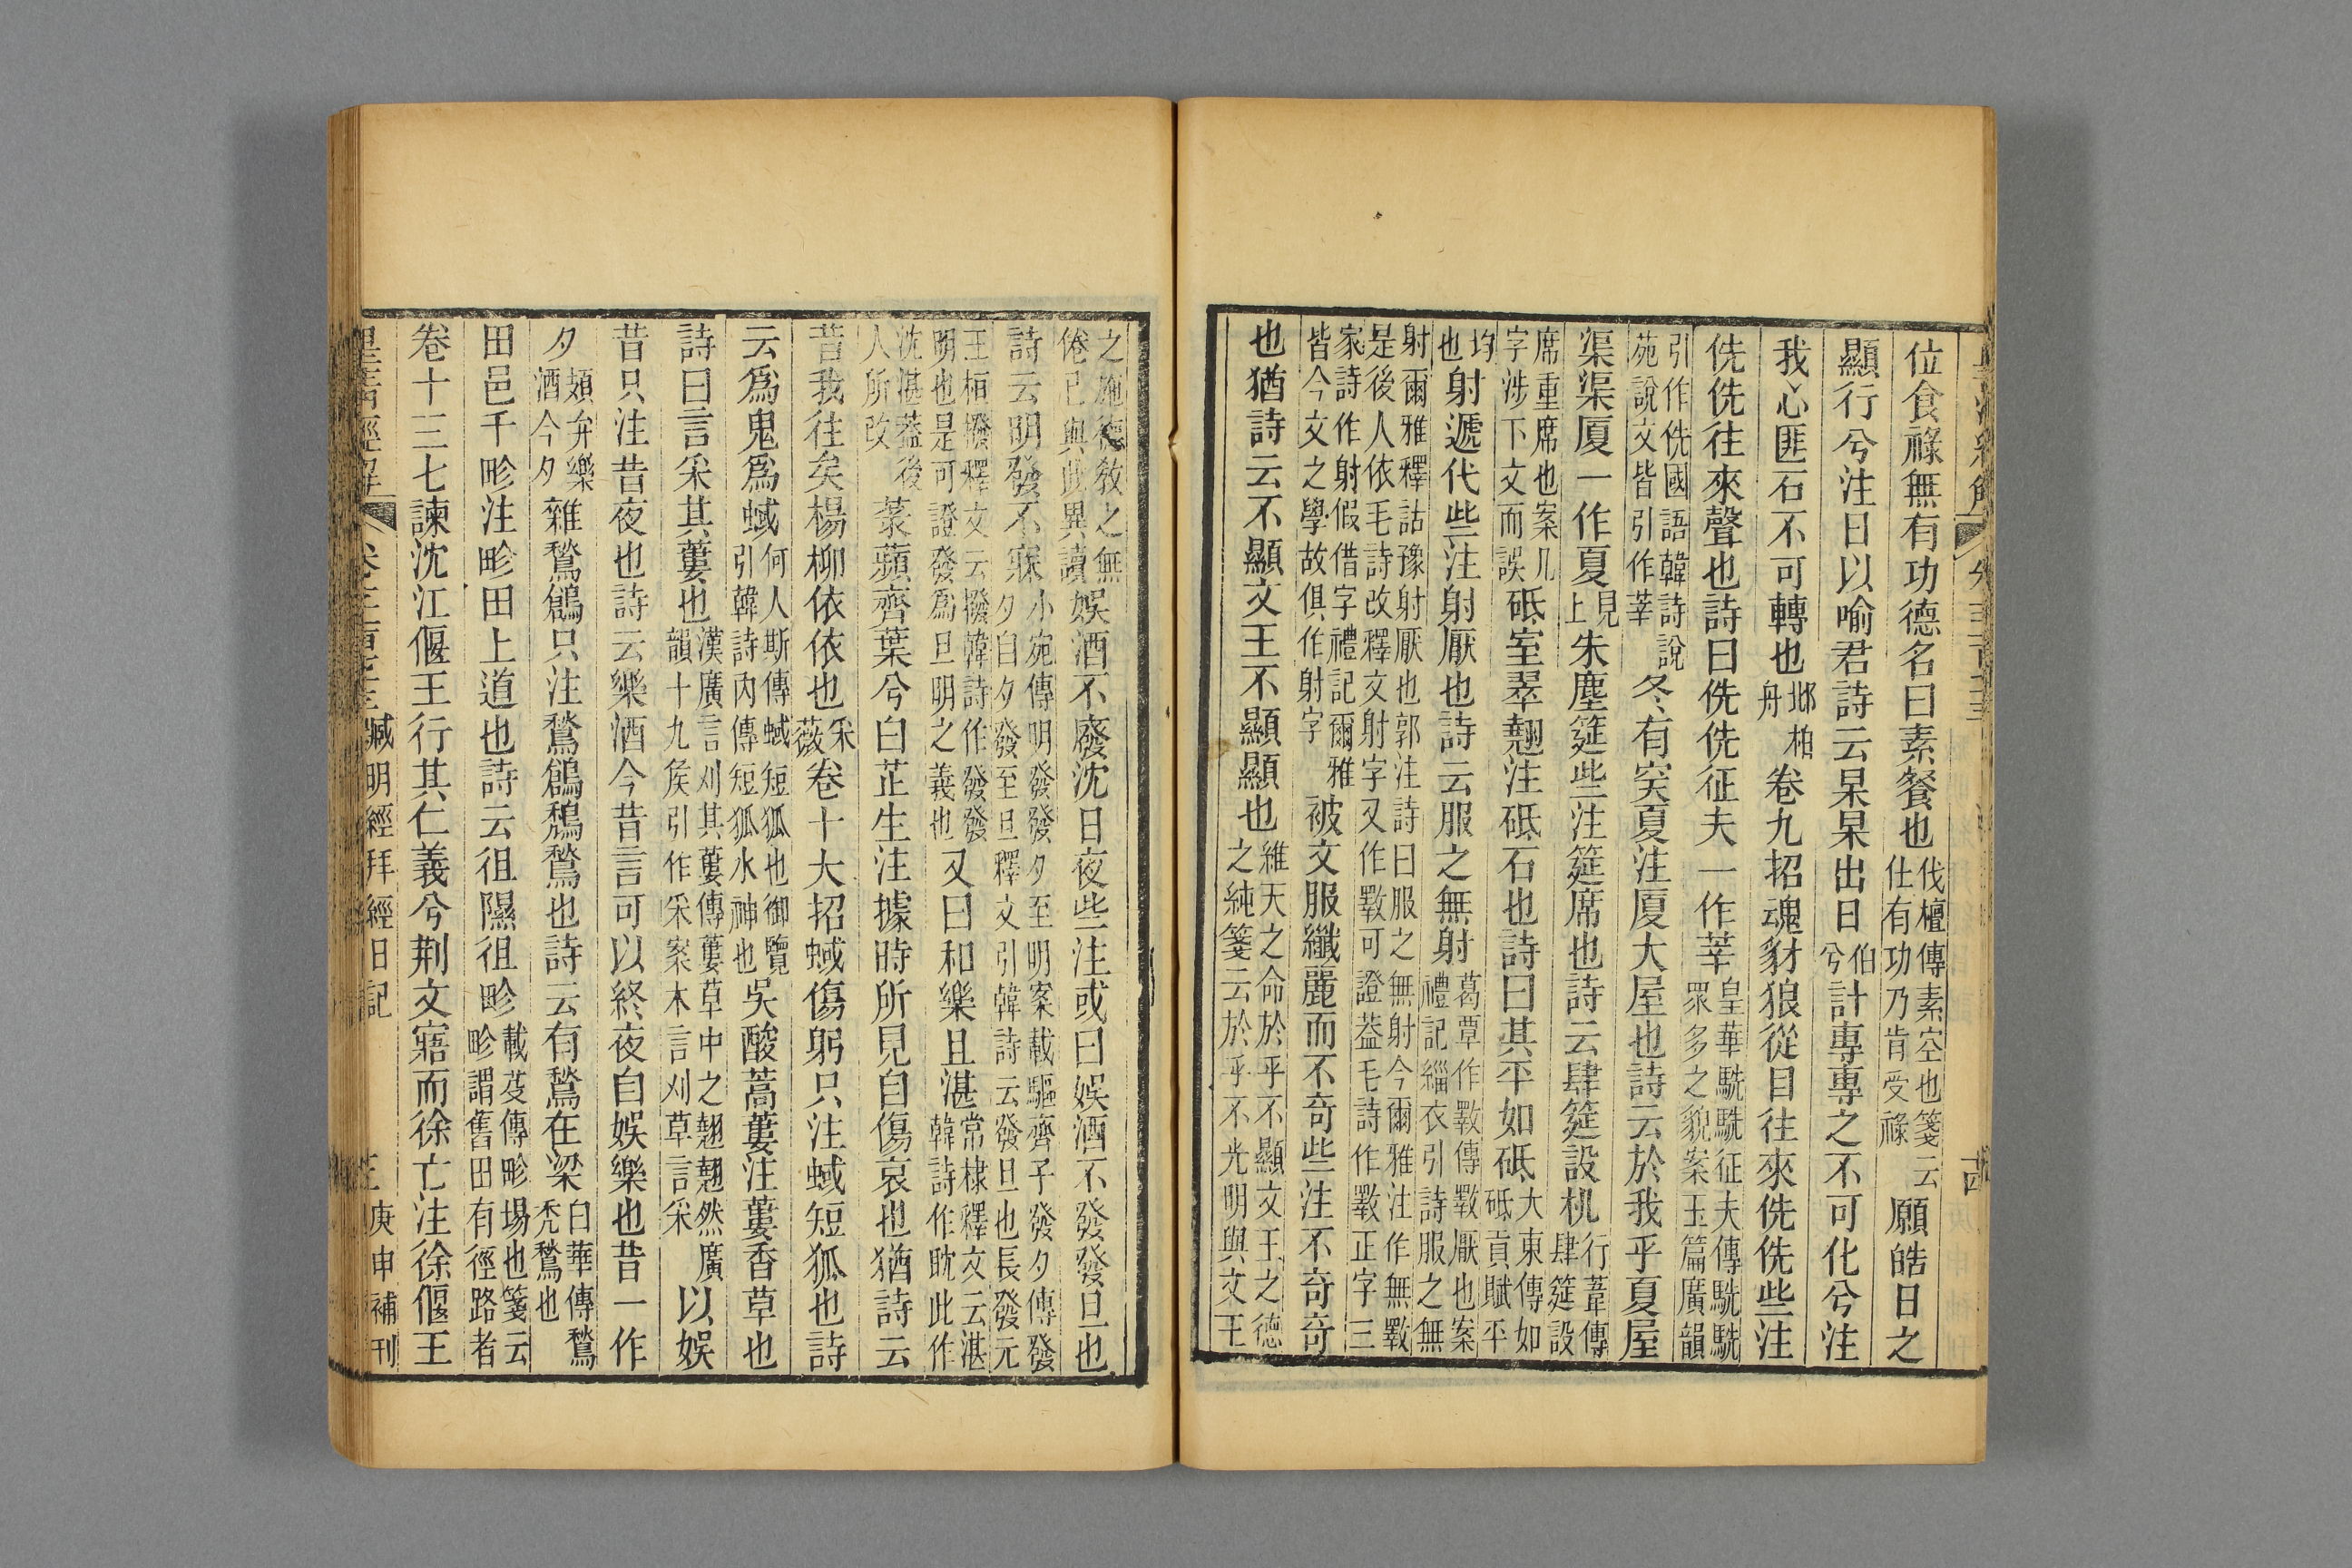 位食祿無有功德名曰素餐也伐檀傳素空也箋云仕有功乃肯受祿願皓日之
顯行兮注日以喻君詩云杲杲出日伯兮計專專之不可化兮注
我心匪石不可轉也邶柏舟卷九招魂豺狼從目往來侁侁些注
侁侁往來聲也詩曰侁侁征夫一作莘皇華駪駪征夫傳駪駪眾多之貌案玉篇廣韻
引作侁國語韓詩說苑說文皆引作莘冬有突夏注厦大屋也詩云於我乎夏屋
渠渠厦一作夏見上朱塵筵些注筵席也詩云肆筵設机行葦傳肆筵設
席重席也案几字涉下文而誤砥室翠翹注砥石也詩曰其平如砥大東傳如砥貢賦平
均也射遞代些注射厭也詩云服之無射葛覃作斁傳斁厭也案禮記緇衣引詩服之無
射爾雅釋詁豫射厭也郭注詩曰服之無射今爾雅注作無斁是後人依毛詩改釋文射字又作斁可證葢毛詩作斁正字三
家詩作射假借字禮記爾雅皆今文之學故俱作射字被文服纖麗而不奇些注不奇奇
也猶詩云不顯文王不顯顯也維天之命於乎不顯文王之德之純箋云於乎不光明與文王
之施德敎之無倦已與此異讀娛酒不廢沈日夜些注或曰娛酒不發發旦也
詩云明發不寐小宛傳明發發夕至明案載驅齊子發夕傳發夕自夕發至旦釋文引韓詩云發旦也長發元
王桓撥釋文云撥韓詩作發發明也是可證發爲旦明之義也又曰和樂且湛常棣釋文云湛韓詩作耽此作
沈湛葢後人所改菉蘋齊葉兮白芷生注據時所見自傷哀也猶詩云
昔我往矣楊柳依依也采薇卷十大招蜮傷躬只注蜮短狐也詩
云爲鬼爲蜮何人斯傳蜮短狐也御覽引韓詩內傳短狐水神也吳酸蒿蔞注蔞香草也
詩曰言采其蔞也漢廣言刈其蔞傳蔞草中之翹翹然廣韻十九侯引作采案木言刈草言采以娛
昔只注昔夜也詩云樂酒今昔言可以終夜自娛樂也昔一作
夕頍弁樂酒今夕雜鶖鶬只注鶖鶬鵚鶖也詩云有鶖在梁白華傳鶖禿鶖也
田邑千畛注畛田上道也詩云徂隰徂畛載芟傳畛埸也箋云畛謂舊田有徑路者
卷十三七諫沈江偃王行其仁義兮荆文寤而徐亡注徐偃王
臧明經拜經日記
庚申補刊